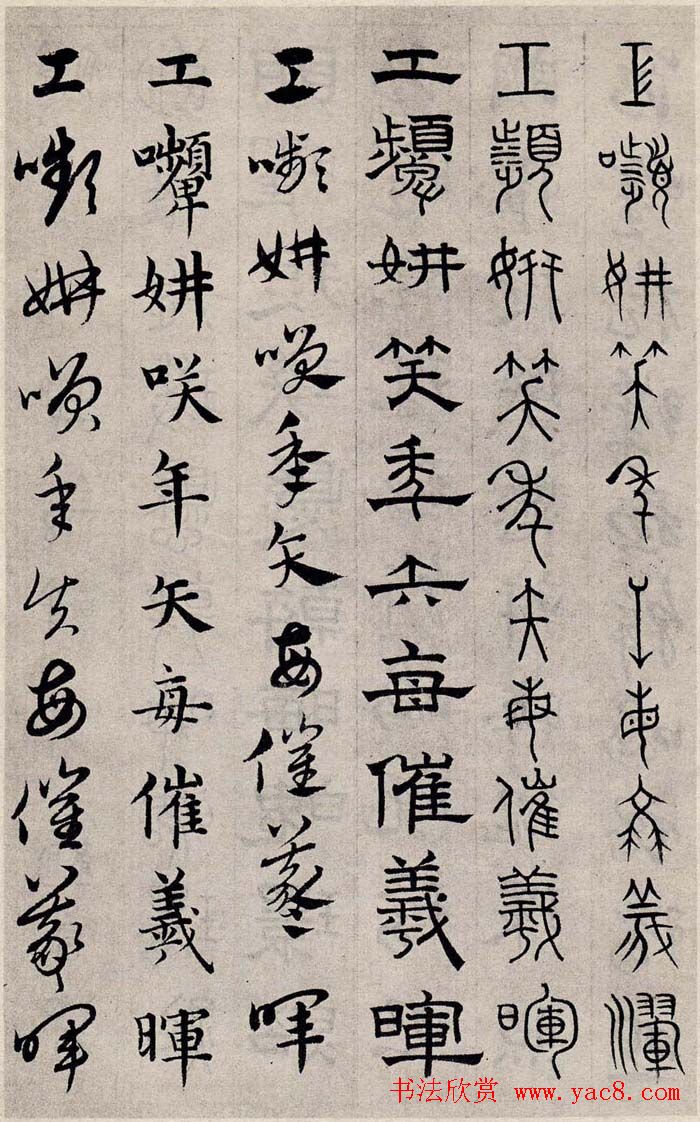 工顰妍笑年矢每催羲暉
工顰妍笑年矢每催羲暉
工顰妍笑年矢每催羲暉
工嚬妍咲年矢每催羲暉
工顰妍咲年矢每催羲暉
工嚬妍咲年矢每催羲暉
书法欣赏 www.yac8.com